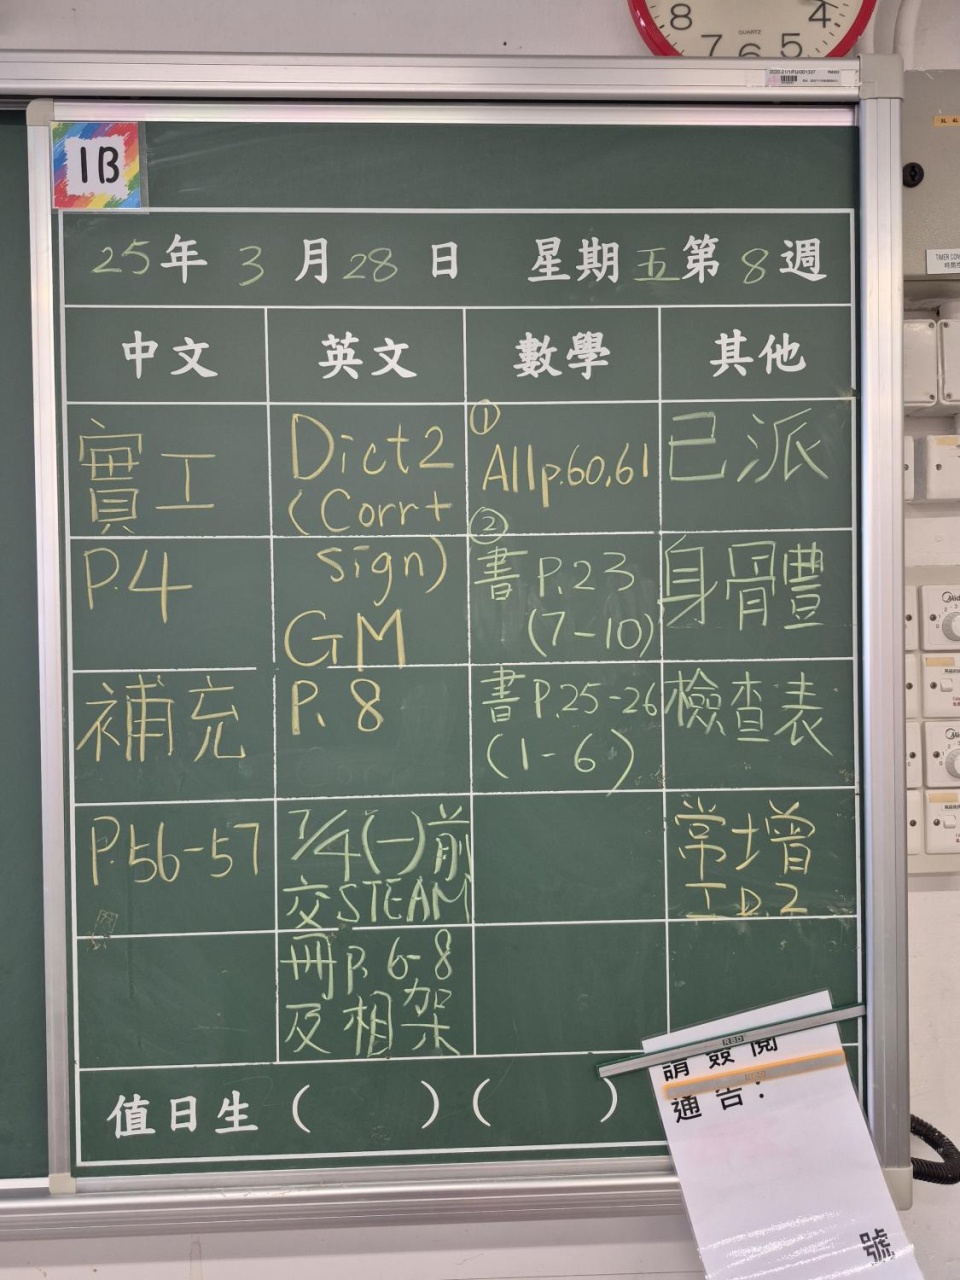 8 4
QUARTZ
7 6 5
1B
25年 3月28日 星期五第8週
中文 英文 數學 其他
實工
P.4
補充
P.56-57
Dict2
(Corr+
sign)
GM
P. 8
7/4(一)前
交STEAM
冊P. 6-8
及相架
①
A11p.60,61
②
書 P.23
(7-10)
書P.25-26
(1-6)
已派
身骨豊
檢查表
常增
工P.2
值日生 ( ) ( )
請簽閱
通告:
號